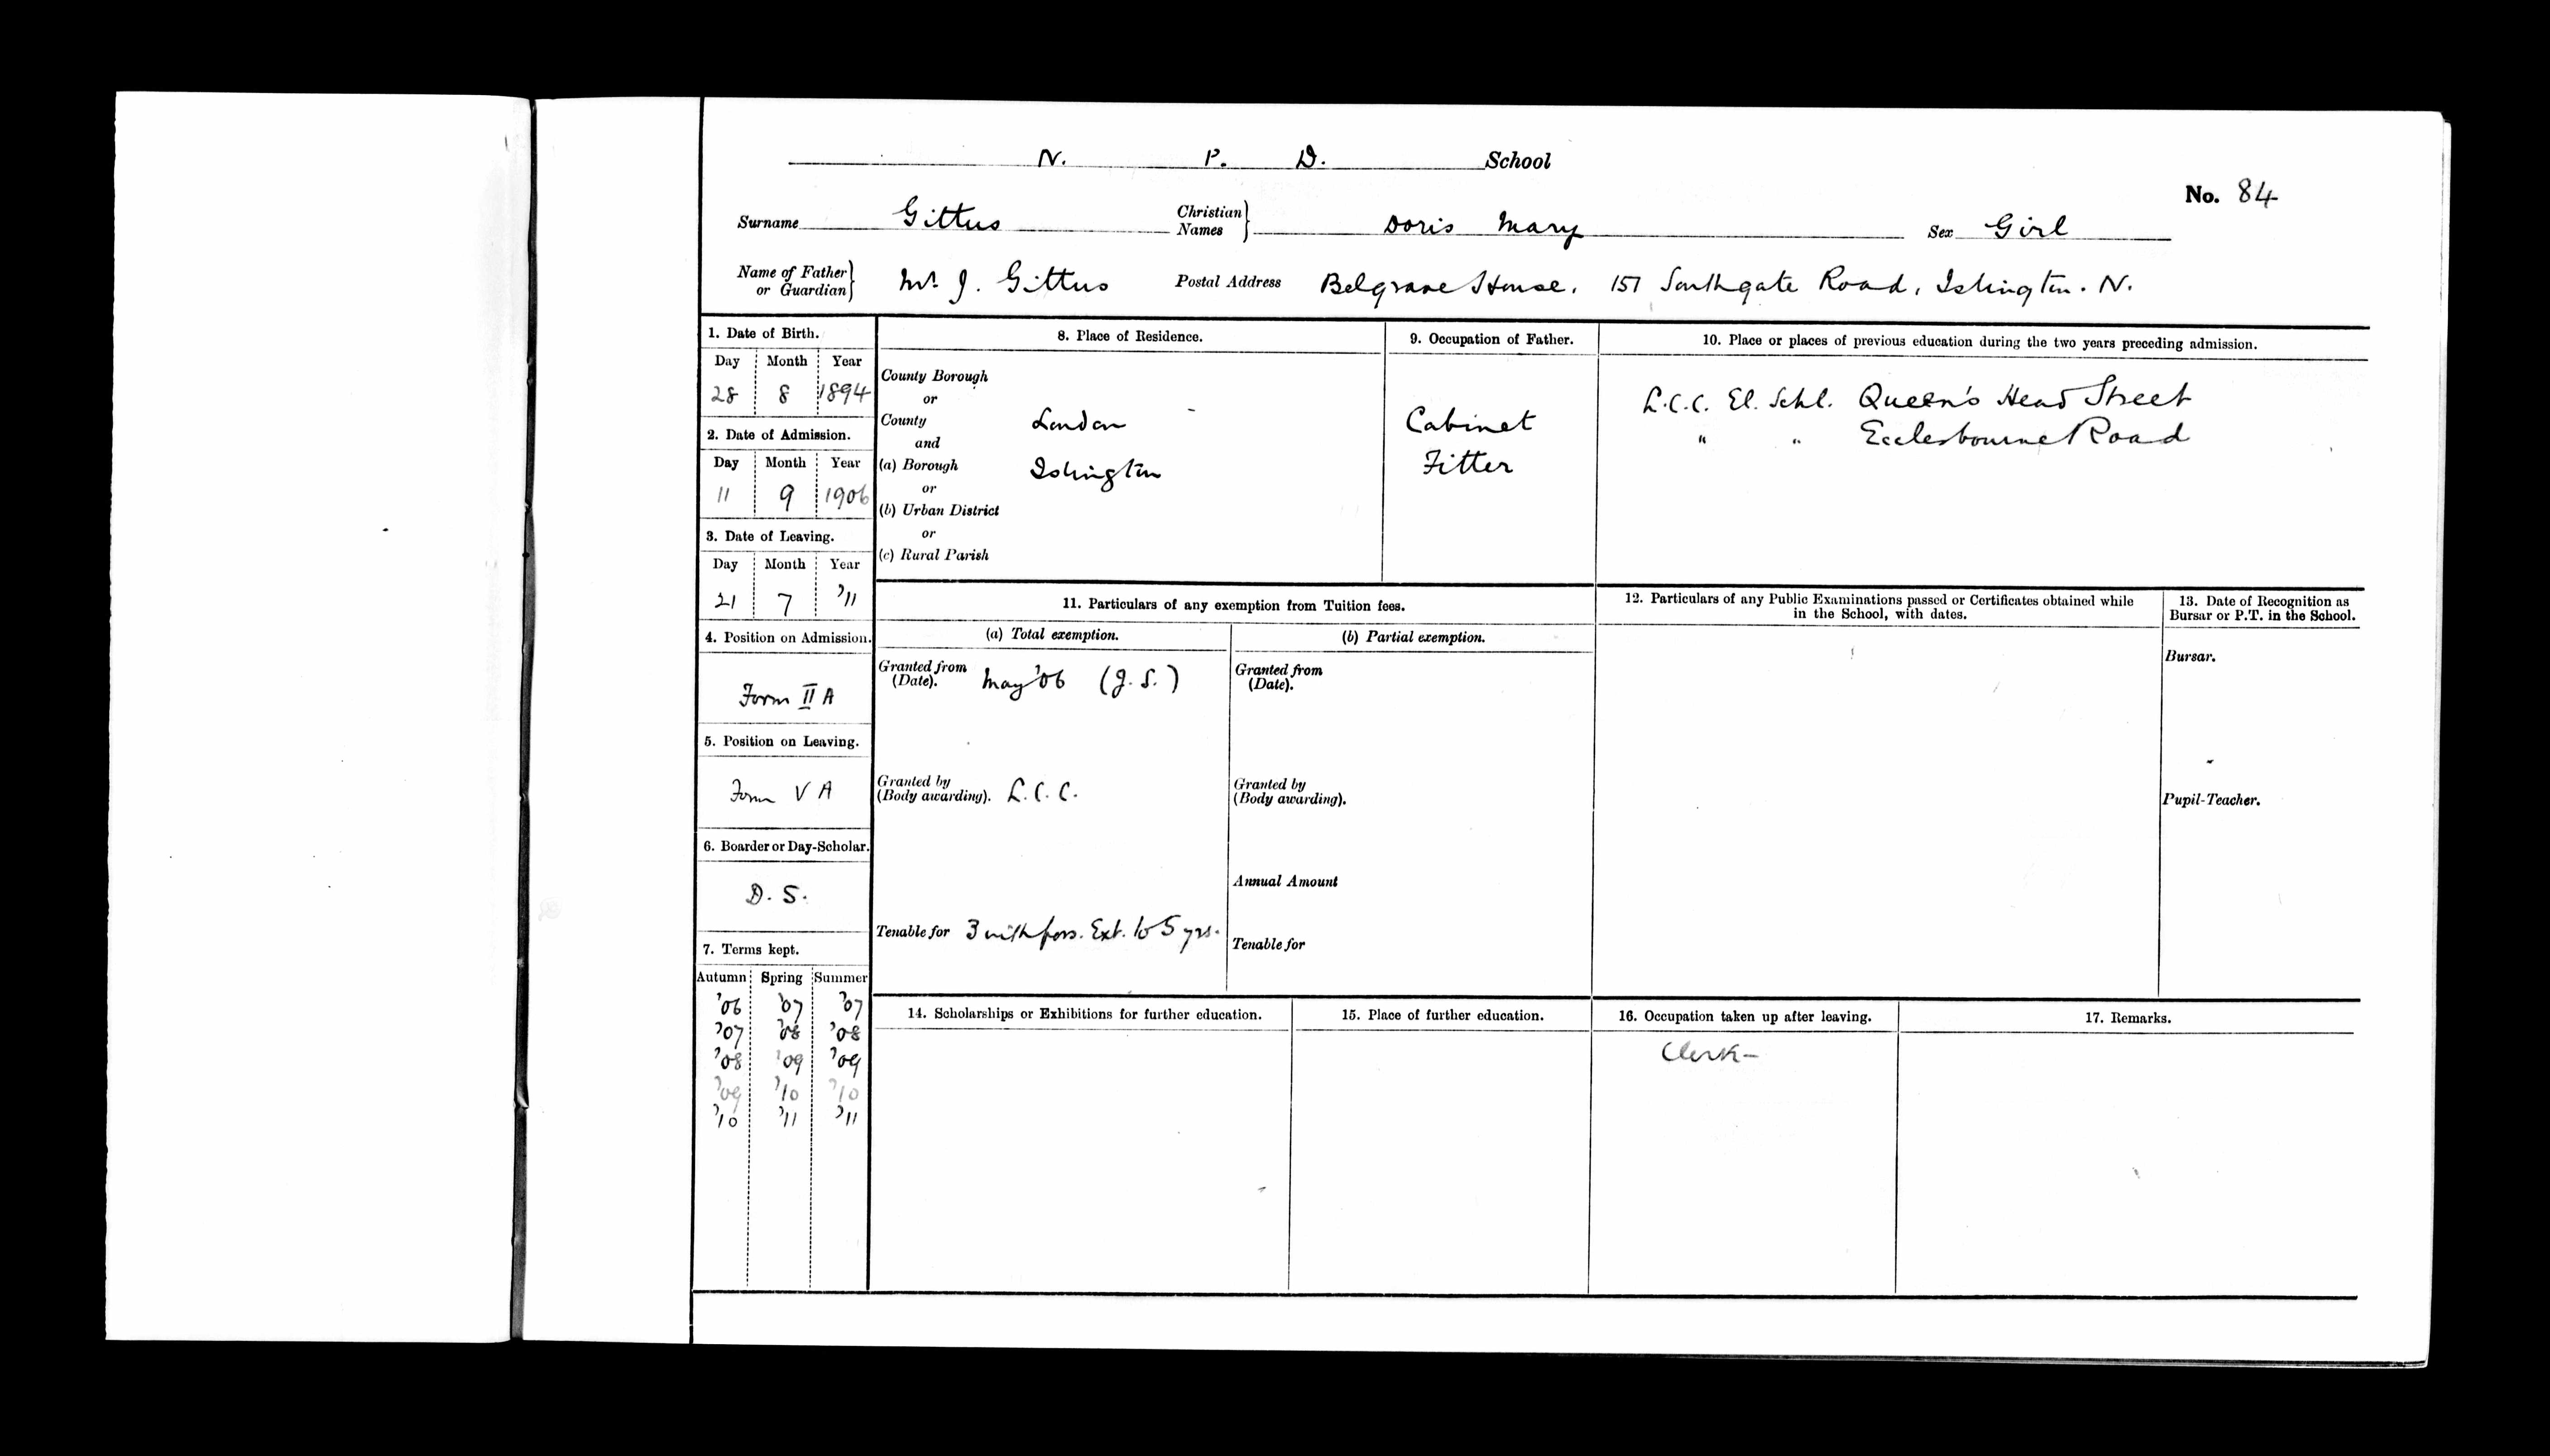 N. P. D. School
No. 84
Surname Gittus Christian Names } Doris Mary Sex Girl
Name of Father or Guardian } Mr. J. Gittus Postal Address Belgrave House, 157 Southgate Road, Islington. N.
1. Date of Birth.
Day Month Year
28 8 1894
2. Date of Admission.
Day Month Year
11 9 1906
3. Date of Leaving.
Day Month Year
21 7 '11
4. Position on Admission.
Form II A
5. Position on Leaving.
Form V A
6. Boarder or Day-Scholar.
D. S.
7. Terms kept.
Autumn Spring Summer
'06 '07 '07
'07 '08 '08
'08 '09 '09
'09 '10 '10
'10 '11 '11
8. Place of Residence.
County Borough
or
County London
and
(a) Borough Islington
or
(b) Urban District
or
(c) Rural Parish
9. Occupation of Father.
Cabinet
Fitter
10. Place or places of previous education during the two years preceding admission.
L.C.C. El. Schl. Queen's Head Street
" " Ecclesbourne Road
11. Particulars of any exemption from Tuition fees.
(a) Total exemption.
Granted from
(Date). May '06 (J. S.)
Granted by
(Body awarding). L. C. C.
Tenable for 3 with poss. Ext. to 5 yrs.
(b) Partial exemption.
Granted from
(Date).
Granted by
(Body awarding).
Annual Amount
Tenable for
12. Particulars of any Public Examinations passed or Certificates obtained while
in the School, with dates.
13. Date of Recognition as
Bursar or P.T. in the School.
Bursar.
Pupil-Teacher.
14. Scholarships or Exhibitions for further education.
15. Place of further education.
16. Occupation taken up after leaving.
Clerk-
17. Remarks.